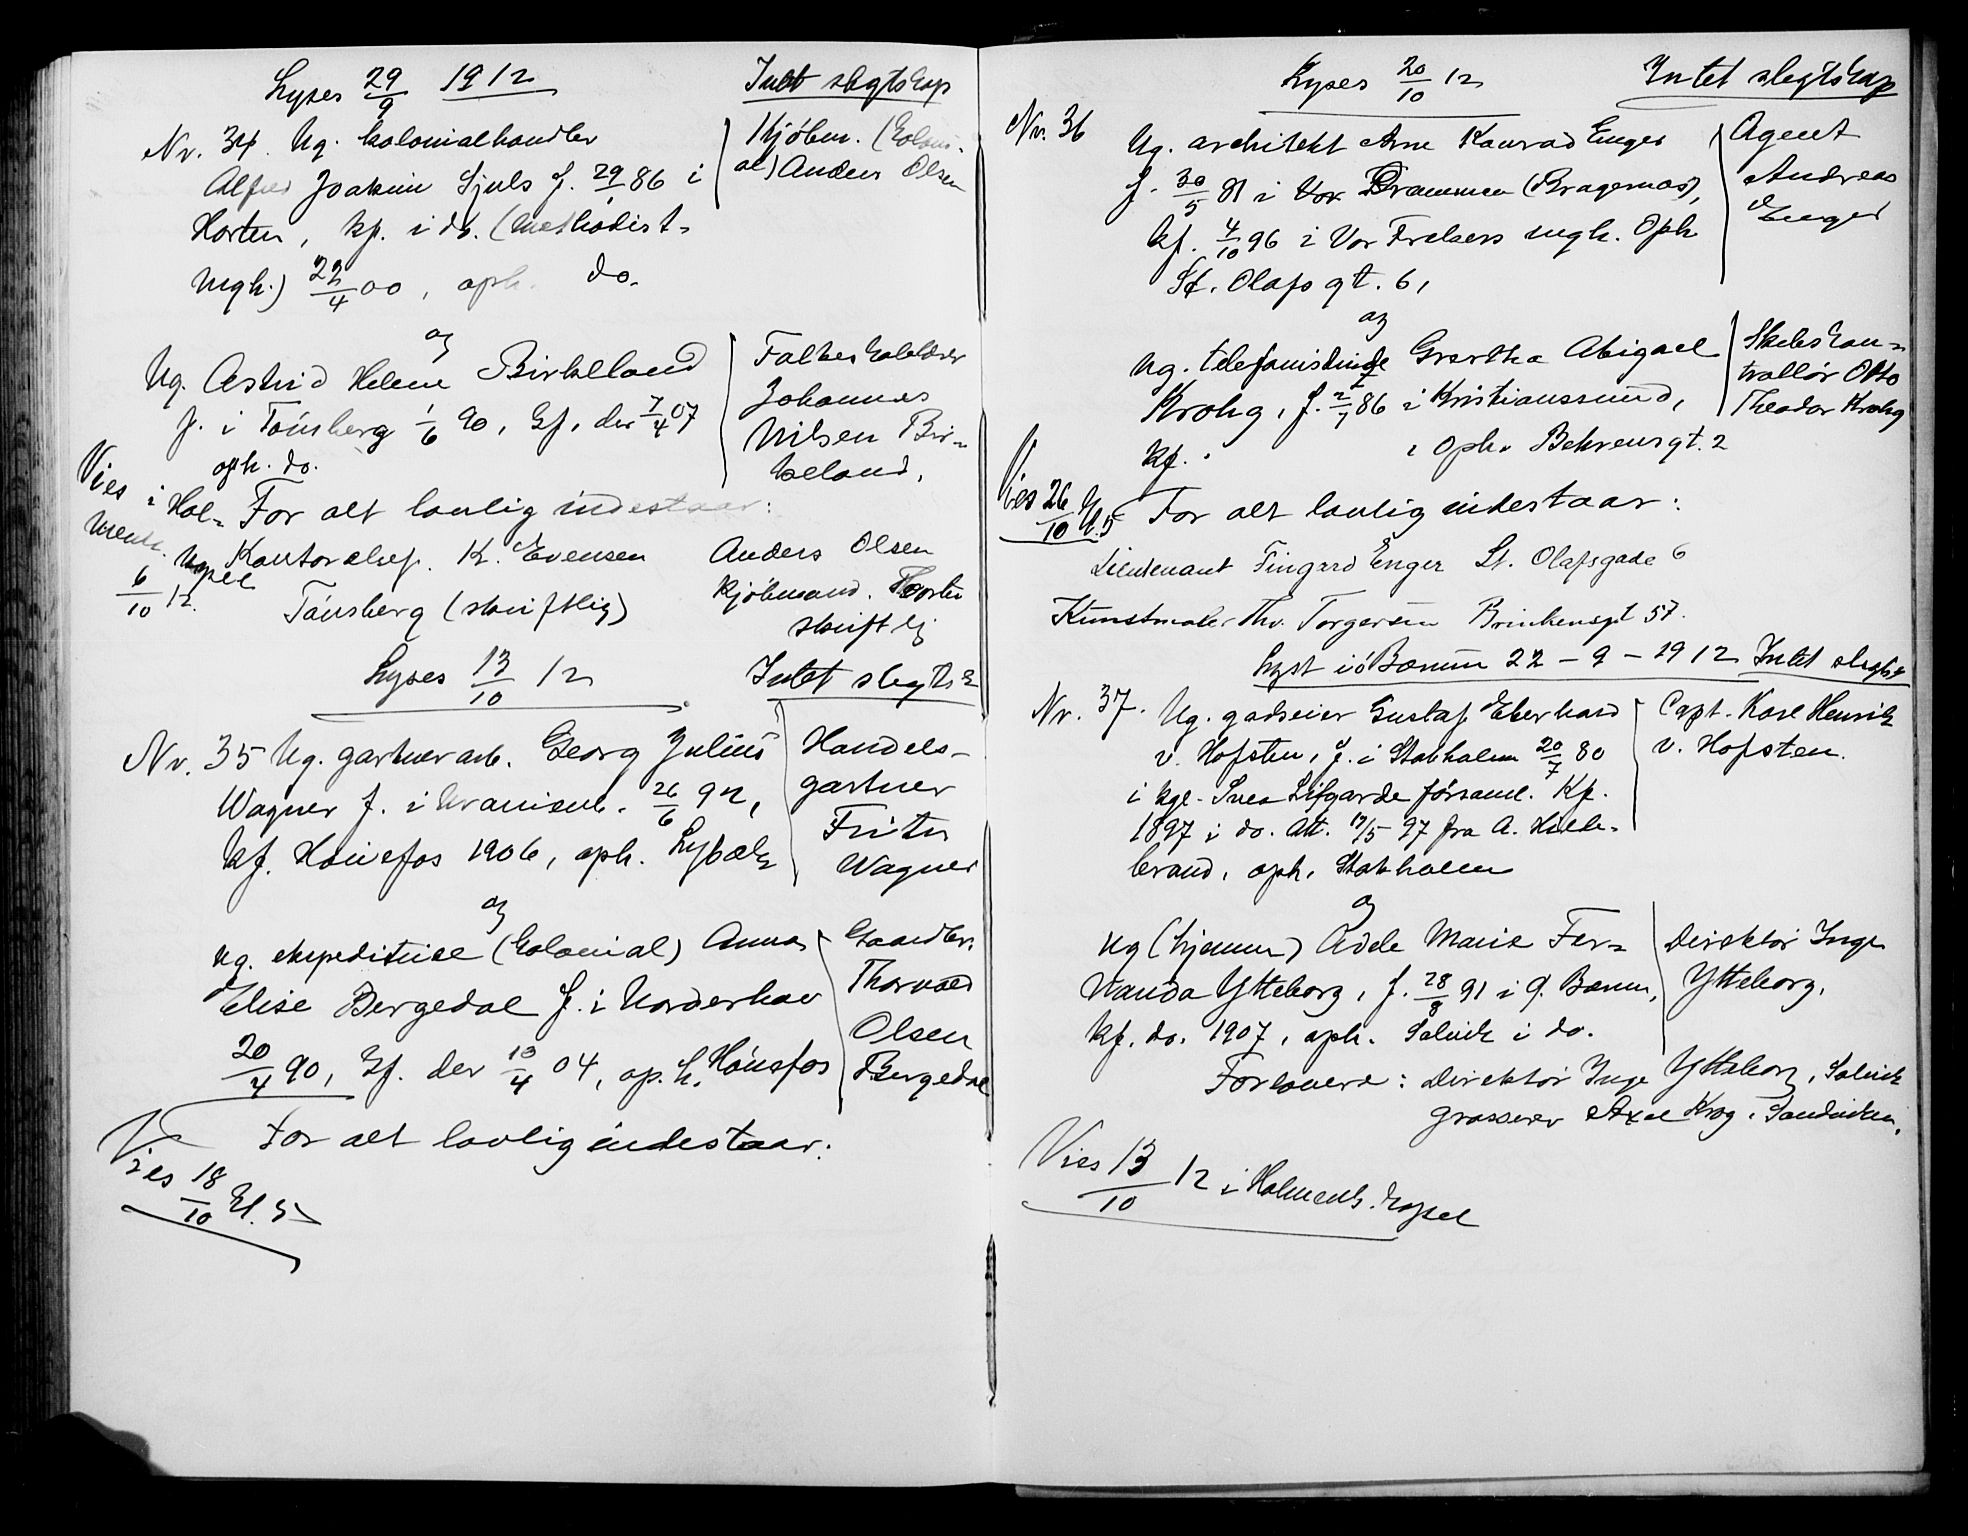 Lyses 29/9 1912 Intet slegtskap
Nr. 34. Ug. kolonialhandler
Alfred Joakim Sjuls f. 29/1 86 i
Horten, kf. i do. (methodist-
mgh.) 22/4 00, oph. do.
Kjøbm. (Koloni-
al) Anders Olsen
og
Ug. Astrid Helene Birkeland
f. i Tønsberg 1/6 90, kf. der 7/4 07
oph. do.
Johannes
Nilsen Bir-
keland.
For alt lovlig indestaar:
Kontorchef. K. Evensen
Tønsberg (skriftlig)
Anders Olsen
Kjøbmand. Horten
skriftlig
Vies i Hol-
menk.
kapel
6/10 12.
Lyses 13/10 12 Intet slegtsk
Nr. 35 Ug. gartnerarb. Georg Julius
Wagner f. i Uranienb. 26/6 92,
kf. Hønefos 1906, oph. Lybæk
Handels-
gartner
Fritz
Wagner
og
ug. ekspeditrice (kolonial) Anna
Elise Bergedal f. i Norderhov
20/4 90, kf. der 10/4 04, op.h. Hønefos
Gaardbr.
Thorvald
Olsen
Bergedal
For alt lovlig indestaar:
Vies 18/10 Kl. 5
Lyses 20/10 12 Intet slegtskap
Nr. 36 Ug. architekt Arne Konrad Enger
f. 30/5 81 i Vor Drammen (Bragernæs),
kf. 4/10 96 i Vor Frelsers mgh. Oph
St. Olafs gt. 6,
Agent
Andreas
Enger
og
ug. telefonistinde Grertha Abigael
Krohg, f. 2/7 86 i Kristianssund,
kf. , oph. Behrensgt. 2
Skebskon-
trollør Otto
Theodor Krohg
Vies 26/10 Kl. 5
For alt lovlig indestaar:
Lieutenant Fingard Enger St. Olafsgade 6
Kunstmaler Thv. Torgersen Brinkensgt 57.
Lyst i ø. Bærum 22-9-1912 Intet slegtsk
Nr. 37. Ug. godseier Gustaf Eberhard
v. Hofsten, f. i Stokholm 20/7 80
i kgl. Svea Lifgarde församl. Kf.
1897 i do. Att. 19/5 97 fra A. Hilde-
brand, oph. Stokholm
Capt. Karl Henrik
v. Hofsten.
og
ug (hjemme) Adele Marie Fer-
nanda Ytteborg, f. 28/8 91 i Ø. Bærum,
kf. do. 1907, oph. Solvik i do.
Direktør Inge
Ytteborg.
Forlovere: Direktør Inge Ytteborg, Solvik
grosserer Axel Krog, Sandviken.
Vies 13/10 12 i Holmenk. kapel